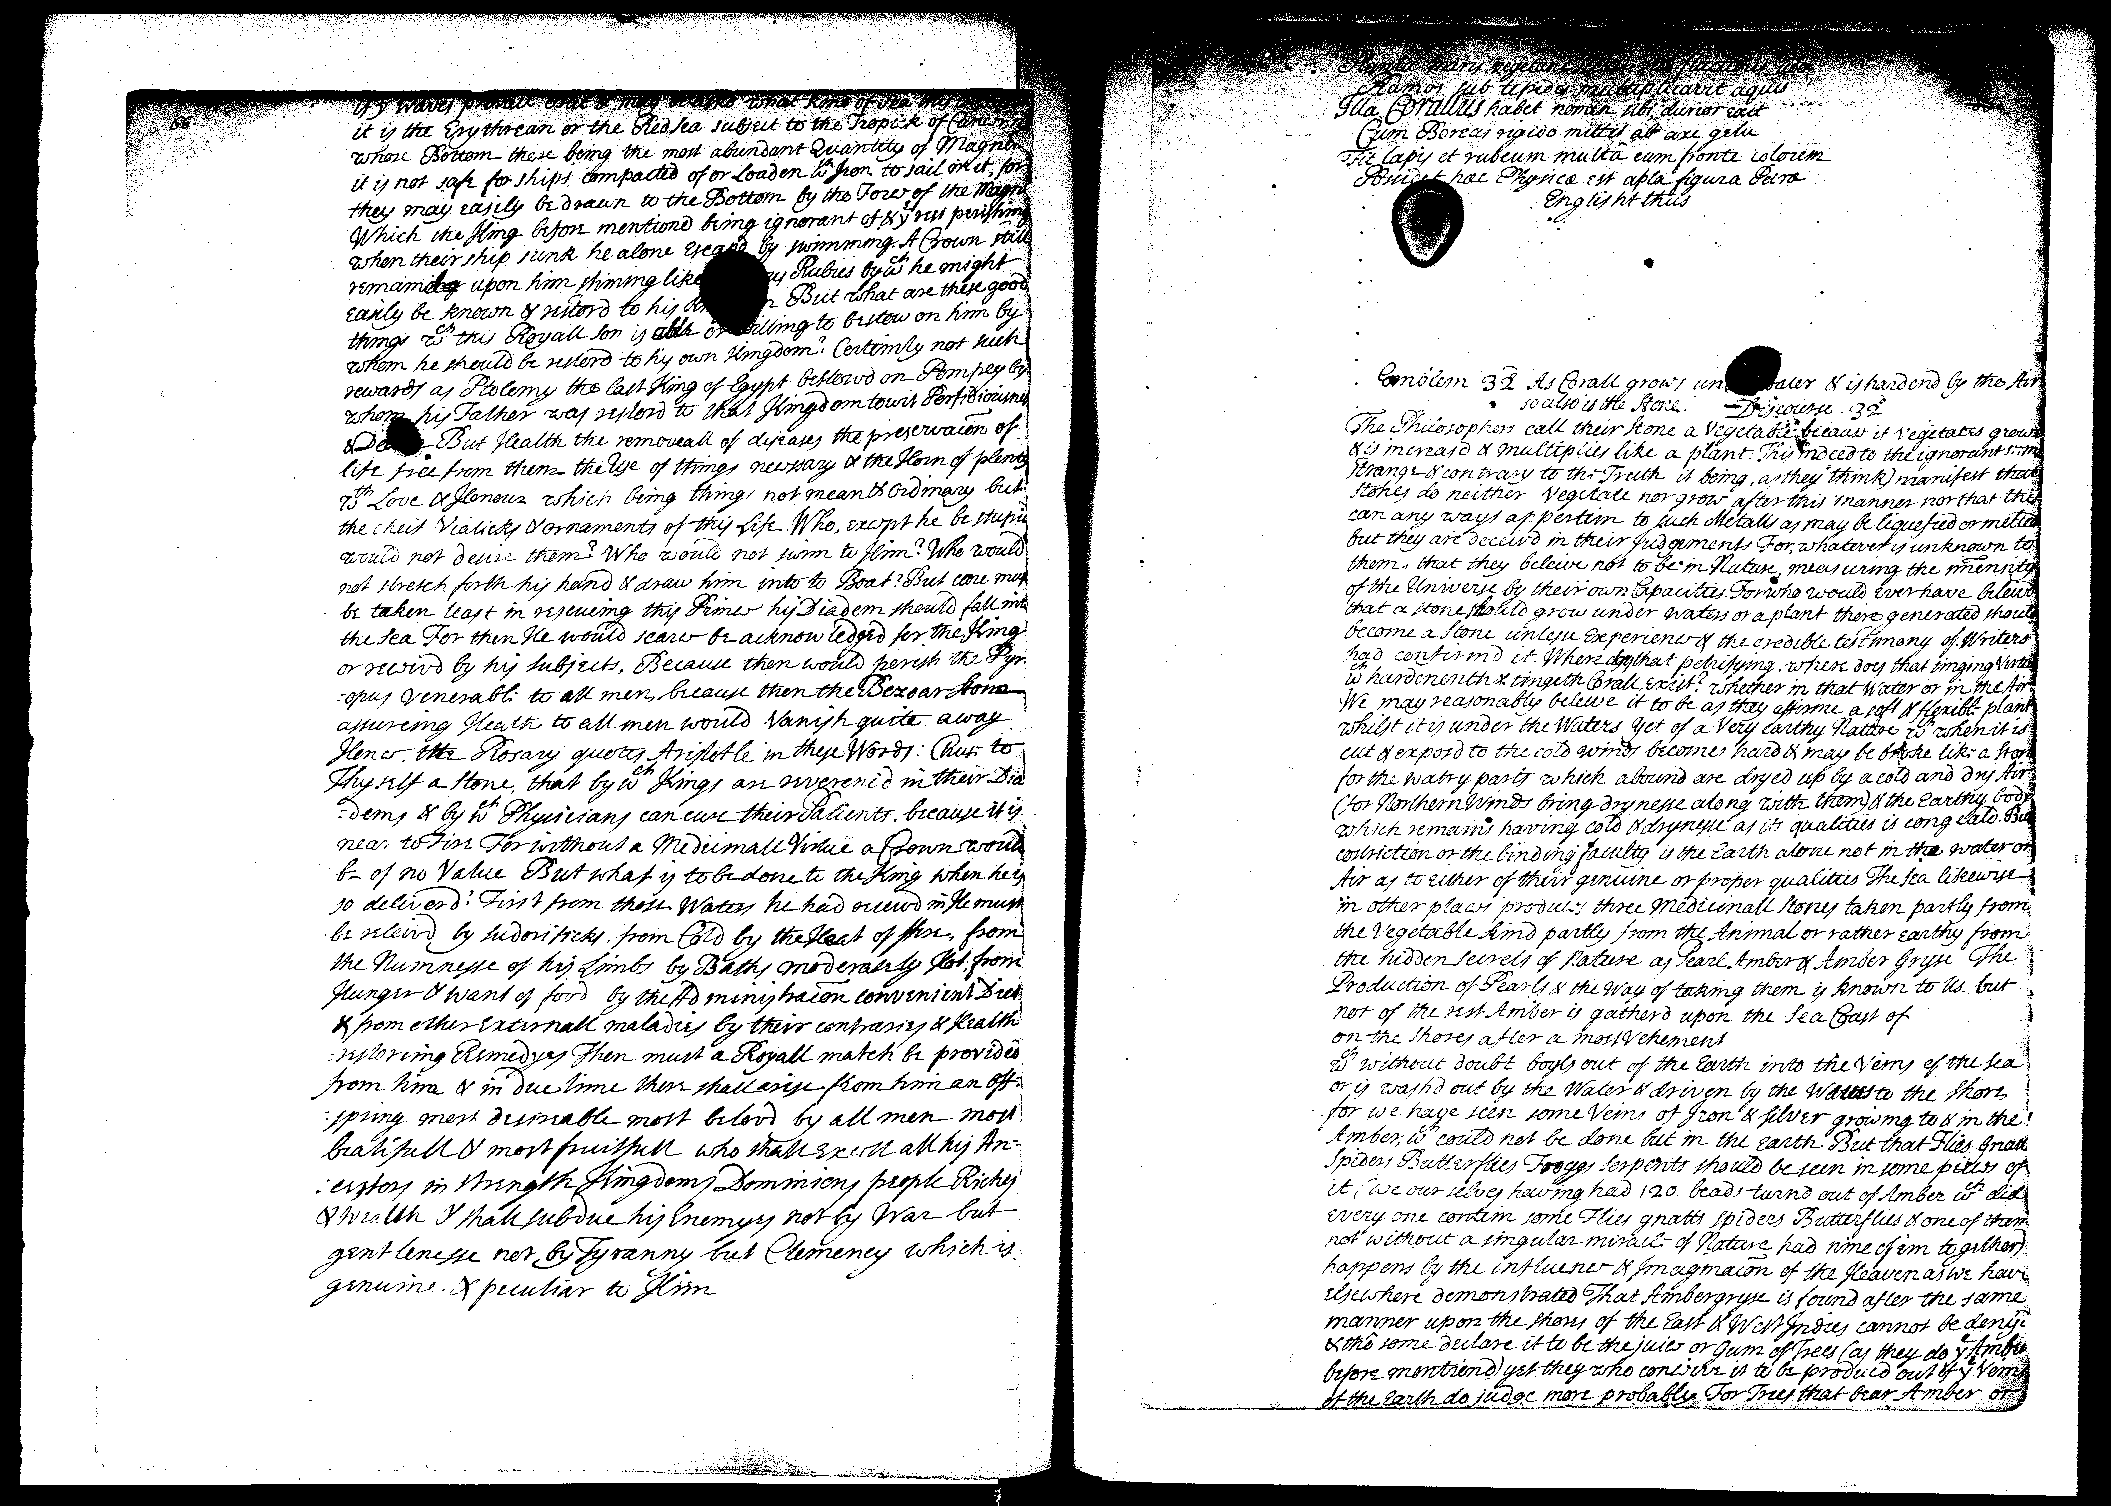 66
if yͤ waves prevail what kind of Sea this
it is the Erythrean or the Red Sea subject to the Tropick of
whose Bottom there being the most abundant Quantity of
it is not safe for ships compacted of or Loaden wth Iron to sail on it, for
they may easily be drawn to the Bottom by the Force of the
Which the King before mentiond being ignorant of & yͤ rest perishing
when their ship sunk he alone escapd by swimming. A Crown still
remaining upon him shining like Rubies by wch he might
easily be known & restord to his But what are these good
things wch this Royall son is able or willing to bestow on him by
whom he should be restord to his own Kingdom? Certeinly not such
rewards as Ptolemy the last King of Egypt bestowd on Pompey by
whom his Father was restord to that Kingdom towit
& But Health the removeall of diseases the preservacon of
life free from them the Use of things necessary & the Horn of plenty
wth Love & Honour which being things not mean & ordinary but
the cheif Viaticks & ornaments of this Life Who, except he be stupid
would not desire them? Who would not swim to Him? Who would
not stretch forth his hand & draw him into to Boat? But care must
be taken least in rescueing this Prince his Diadem should fall into
the Sea For then He would scarce be acknowledged for the King
or receivd by his subjects, Because then would perish the Pyr
-opus Venerable to all men, because then the Bezoar Stone
assureing Health to all men would Vanish quite away
Hence the Rosary quotes Aristotle in these Words: Chuse to
Thyself a stone, that by wch Kings are reverencd in their Dia
-dems & by wch Physicians can cure their Patients, because it is
near to Fire For without a Medicinall Virtue a Crown would
be of no Value But what is to be done to the King when he is
so deliverd? First from those Waters he had receivd in He must
be releivd by sudorificks, from Cold by the Heat of fire, from
the Numnesse of his Limbs by Baths moderately Hot, from
Hunger & want of food by the Administracon convenient Diet
& from other Externall maladies by their contraries & Health
restoreing Remedyes Then must a Royall match be provided
from him & in due time there shall arise from him an off-
spring most desireable most belovd by all men most
beatifull & most fruitfull who shall Excell all his An-
:cestors in strength Kingdoms Dominions people Riches
& wealth & shall subdue his Enemyes not by War but
gentlenesse not by Tyranny but Clemency which is
genuine & peculiar to Him
Ramos sub tepidis multiplicavit aquis
Illa Corallus habet nomen sibi, durior exit
Cum Boreas rigido mittit ab axe gelu
Fit lapis et rubeum multâ cum fronde colorem
Possidet hæc Physicæ est apta figura Petræ
English't thus
Emblem 32 As Corall grows under water & is hardend by the Air
so also is the Stone. Discourse 32
The Philosophers call their Stone a Vegetable becaus it Vegetates grows
& is increasd & multiplies like a plant. This indeed to the ignorant seems
strange & contrary to the Truth it being, as they think, manifest that
stones do neither Vegetate nor grow after this manner nor that this
can any ways appertein to such Metalls as may be liquefied or melted
but they are deceivd in their Judgements For, whatever is unknown to
them, that they beleive not to be in Nature, measuring the immensity
of the Universe by their own Capacities For who would Ever have beleivd
that a stone should grow under waters or a plant there generated should
become a Stone unlesse Experience & the credible testimony of Writers
had confirmd it. Where doth that petrifying, where does that tinging Virtue
wch hardeneth & tingeth Corall Exist? whether in that Water or in the Air
We may reasonably beleive it to be as they affirme a soft & flexible plant
whilst it is under the Waters yet of a Very earthy Nature wch when it is
cut & exposd to the cold winds becomes hard & may be broke like a stone
for the watry parts which abound are dryed up by a cold and dry Air
(for Northern Winds bring drynesse along with them) & the Earthy body
which remains having cold & drynesse as its qualities is congeald. But
constriction or the binding faculty is the Earth alone not in the water or
Air as to either of their genuine or proper qualities The Sea likewise
in other places produces three Medicinall stones taken partly from
the Vegetable Kind partly from the Animal or rather Earthy from
the hidden secrets of Nature as Pearl Amber & Amber Gryse The
Production of Pearls & the way of taking them is known to Us but
not of the rest Amber is gatherd upon the Sea Coast of
on the shores after a most Vehement
wch without doubt boyls out of the Earth into the Veins of the Sea
or is wash'd out by the Water & driven by the Waves to the Shore
for we have seen some Veins of Iron & silver growing to & in the
Amber, wch could not be done but in the Earth But that Flies Gnatts
Spiders Butterflies Froggs Serpents should be seen in some pieces of
it (we our selves having had 120 beads turnd out of Amber wch did
every one contein some Flies gnatts Spiders Butterflies & one of them
not without a singular miracle of Nature had nine of em together)
happens by the influence & Imaginacon of the Heaven as we have
elsewhere demonstrated That Ambergryse is found after the same
manner upon the shores of the East & West Indies cannot be deny'd
& tho some declare it to be the juice or Gum of Trees (as they do yͤ Amber
before mentiond) yet they who conceive it to be produced out of yͤ Veins
of the Earth do judge more probably For Trees that bear Amber or